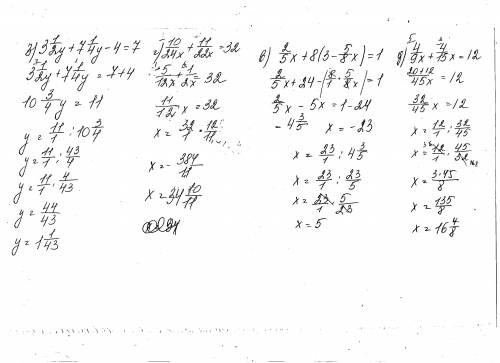 з) 3 1/2 y + 7 1/4 y - 4 = 7
3 1/2 y + 7 1/4 y = 7 + 4
10 3/4 y = 11
y = 11/1 : 10 3/4
y = 11/1 : 43/4
y = 11/1 · 4/43
y = 44/43
y = 1 1/43
10/24 x + 11/22 x = 32
5/12 x + 1/2 x = 32
11/12 x = 32
x = 32/1 · 12/11
x = - 384/11
x = 34 10/11
в) 2/5 x + 8(3 - 5/8 x) = 1
2/5 x + 24 - (8/1 · 5/8 x) = 1
2/5 x - 5x = 1 - 24
- 4 3/5 x = -23
x = 23/1 : 4 3/5
x = 23/1 : 23/5
x = 23/1 · 5/23
x = 5
д) 4/9 x + 4/15 x = 12
20+12/45 x = 12
32/45 x = 12
x = 12/1 : 32/45
x = 12/1 · 45/32
x = 3·45/8
x = 135/8
x = 16 4/8